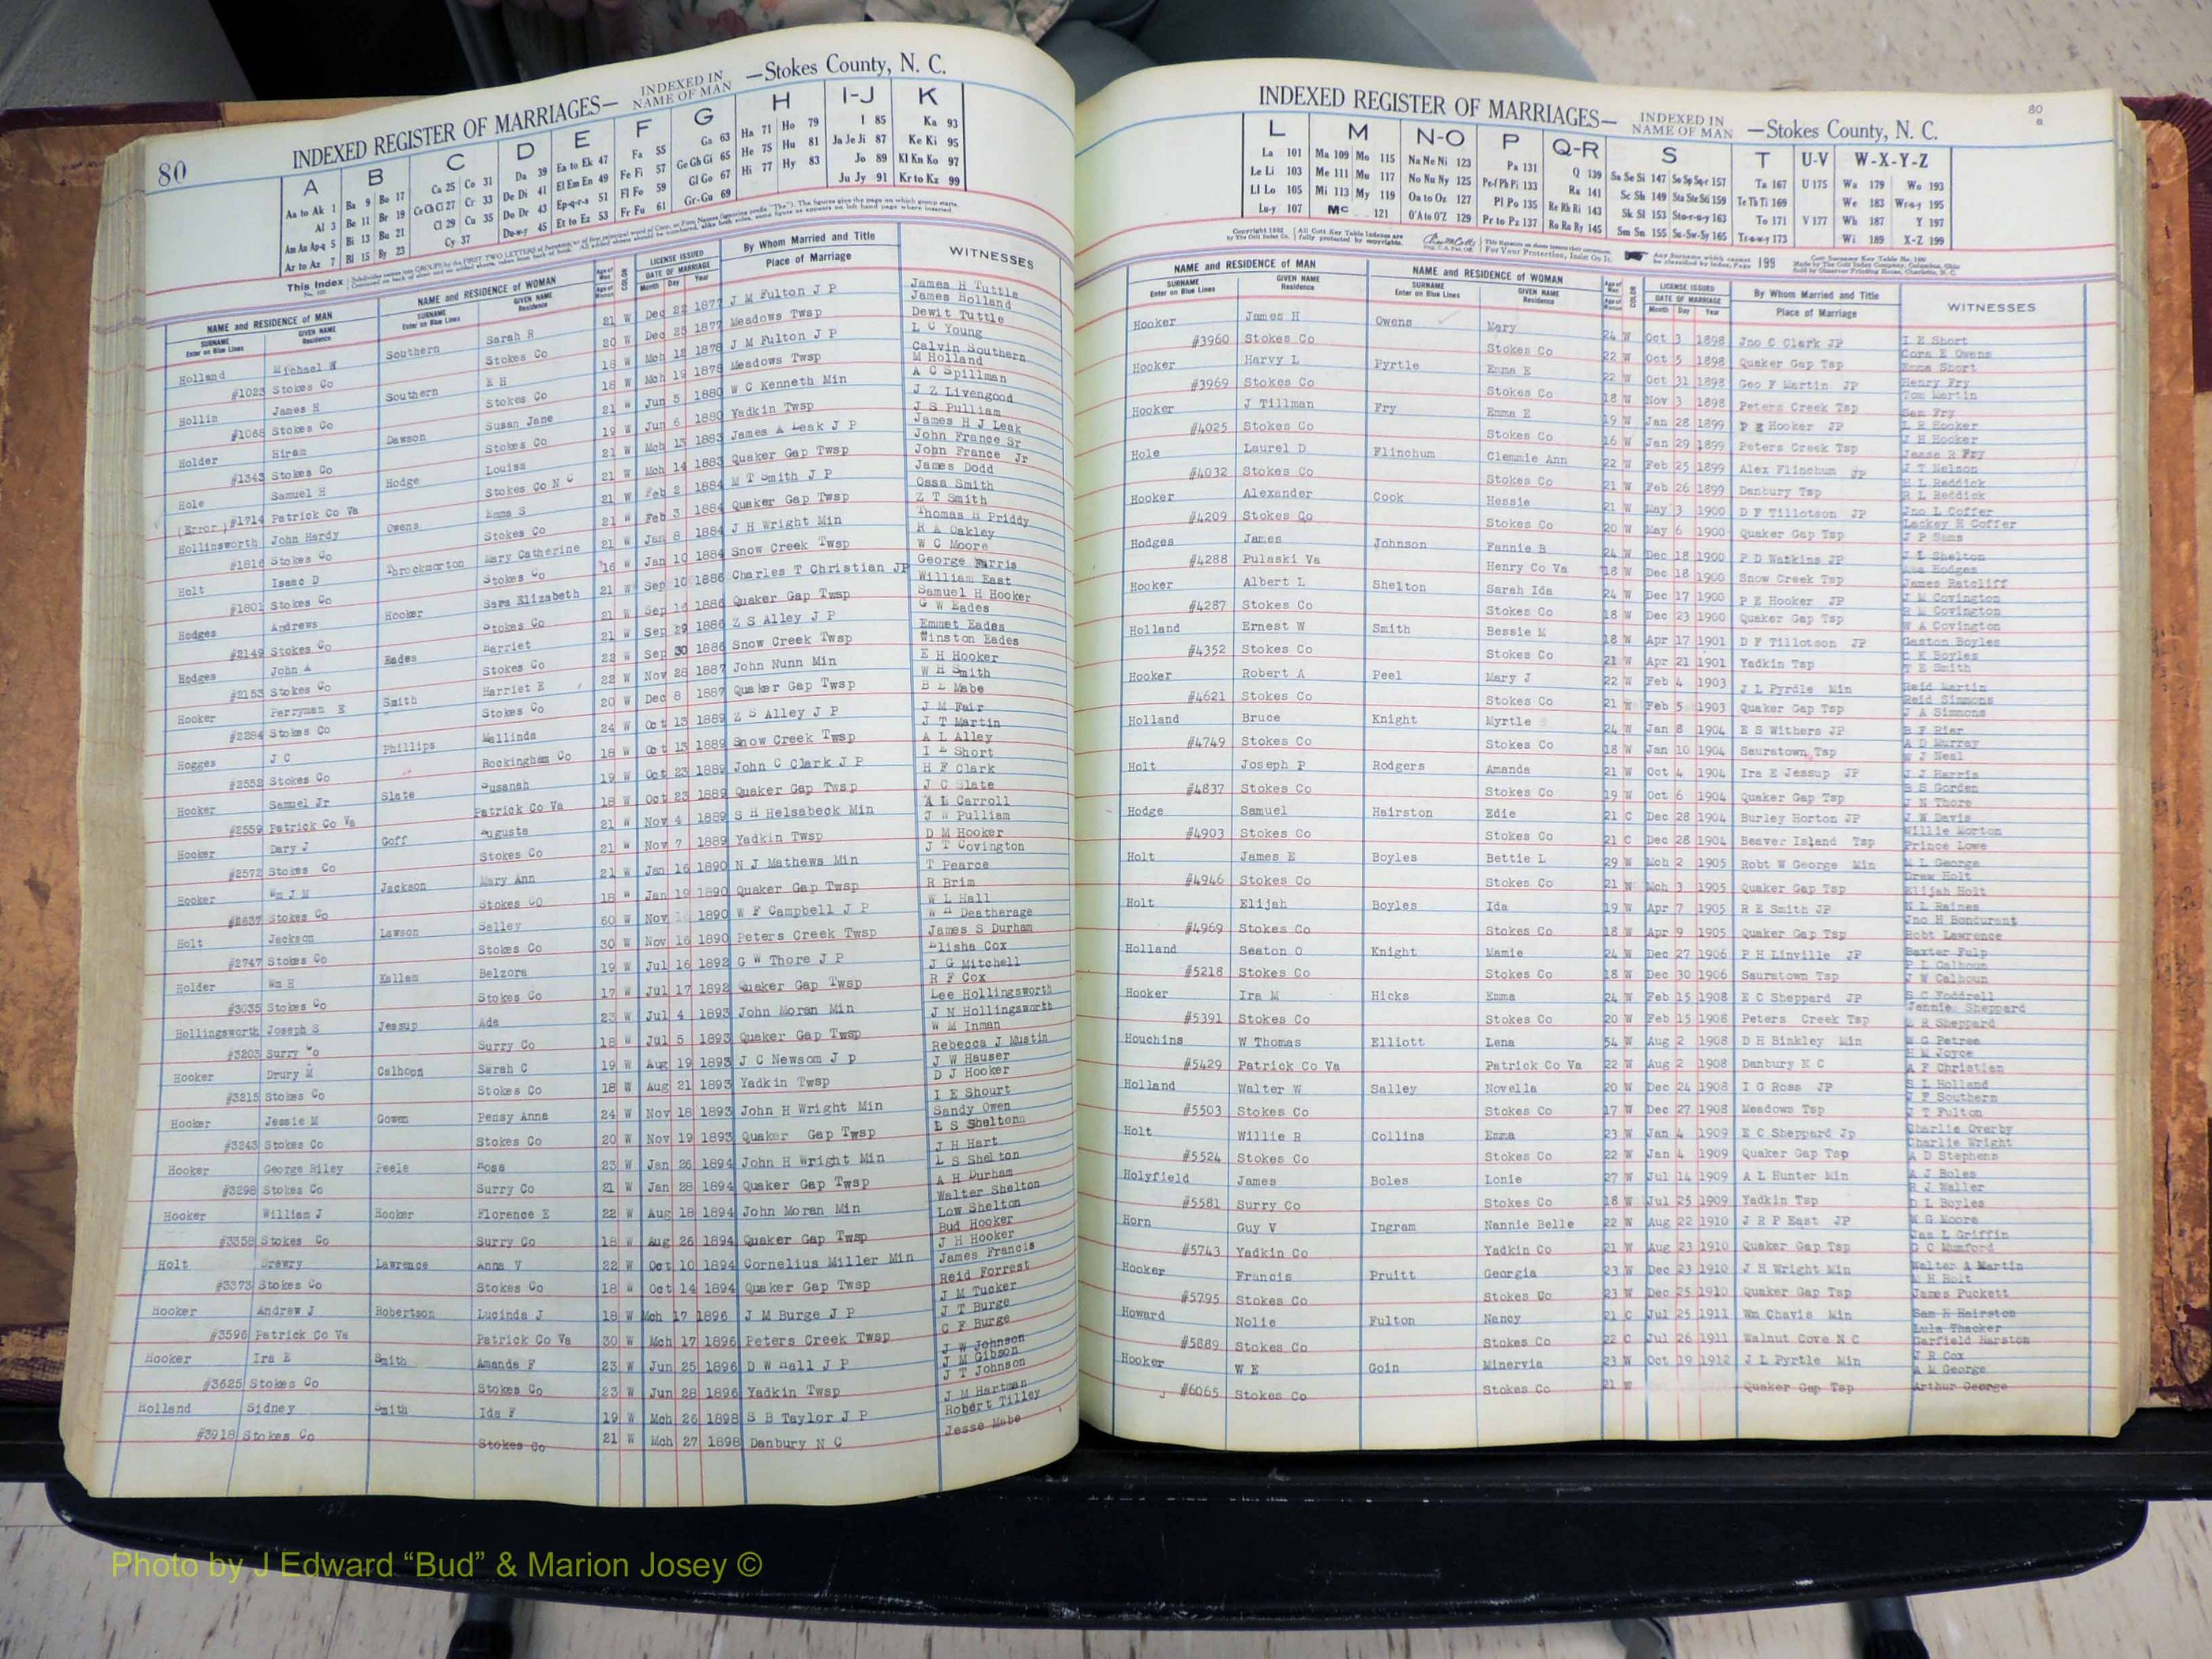 80
INDEXED REGISTER OF MARRIAGES— INDEXED IN NAME OF MAN —Stokes County, N. C.
A B C D E F G H I-J K
Aa to Ak 1 Ba 9 Bo 17 Ca 25 Co 31 Da 39 Ea to Ek 47 Fa 55 Ga 63 Ha 71 Ho 79 I 85 Ka 93
Al 3 Be 11 Br 19 Ce Ch Ci 27 Cr 33 De Di 41 El Em En 49 Fe Fi 57 Ge Gh Gi 65 He 75 Hu 81 Ja Je Ji 87 Ke Ki 95
Am An Ap-q 5 Bi 13 Bu 21 Cl 29 Cu 35 Do Dr 43 Ep-q-r-s 51 Fl Fo 59 Gl Go 67 Hi 77 Hy 83 Jo 89 Kl Kn Ko 97
Ar to Az 7 Bl 15 By 23 Cy 37 Du-w-y 45 Et to Ez 53 Fr Fu 61 Gr-Gu 69 Ju Jy 91 Kr to Kz 99
NAME and RESIDENCE OF MAN NAME and RESIDENCE OF WOMAN LICENSE ISSUED By Whom Married and Title WITNESSES
SURNAME GIVEN NAME SURNAME GIVEN NAME DATE OF MARRIAGE Place of Marriage
Enter on Blue Lines Residence Enter on Blue Lines Residence Month Day Year
Holland Michael W Southern Sarah R 21 W Dec 22 1877 J M Fulton J P James H Tuttle
James Holland
#1023 Stokes Co Stokes Co 20 W Dec 25 1877 Meadows Twsp Dewit Tuttle
Hollin James H Southern E H 18 W Mch 18 1878 J M Fulton J P L C Young
Calvin Southern
#1065 Stokes Co Stokes Co 18 W Mch 19 1878 Meadows Twsp M Holland
Holder Hiram Dawson Susan Jane 21 W Jun 5 1880 W C Kenneth Min A C Spillman
J Z Livengood
#1343 Stokes Co Stokes Co 19 W Jun 6 1880 Yadkin Twsp J S Pulliam
Hole Samuel H Hodge Louisa 21 W Mch 13 1883 James A Leak J P James H J Leak
John France Sr
(Error) #1714 Patrick Co Va Stokes Co N C 21 W Mch 14 1883 Quaker Gap Twsp John France Jr
Hollinsworth John Hardy Owens Emma S 21 W Feb 2 1884 M T Smith J P James Dodd
Ossa Smith
#1816 Stokes Co Stokes Co 21 W Feb 3 1884 Quaker Gap Twsp Z T Smith
Holt Isaac D Throckmorton Mary Catherine 21 W Jan 8 1884 J H Wright Min Thomas H Priddy
R A Oakley
#1801 Stokes Co Stokes Co 16 W Jan 10 1884 Snow Creek Twsp W C Moore
Hodges Andrews Hooker Sara Elizabeth 21 W Sep 10 1886 Charles T Christian JP George Farris
William East
#2149 Stokes Co Stokes Co 21 W Sep 1886 Quaker Gap Twsp Samuel H Hooker
Hodges John A Eades Harriet 21 W Sep 29 1886 Z S Alley J P G W Eades
Emmet Eades
#2153 Stokes Co Stokes Co 22 W Sep 30 1886 Snow Creek Twsp Winston Eades
Hooker Perryman E Smith Harriet E 22 W Nov 28 1887 John Nunn Min E H Hooker
W H Smith
#2284 Stokes Co Stokes Co 20 W Dec 8 1887 Quaker Gap Twsp B L Mabe
Hogges J C Phillips Mallinda 24 W Oct 13 1889 Z S Alley J P J M Fair
J T Martin
#2552 Stokes Co Rockingham Co 18 W Oct 13 1889 Snow Creek Twsp A L Alley
Hooker Samuel Jr Slate Susanah 19 W Oct 23 1889 John C Clark J P I L Short
H F Clark
#2559 Patrick Co Va Patrick Co Va 18 W Oct 23 1889 Quaker Gap Twsp J C Slate
Hooker Dary J Goff Augusta 21 W Nov 4 1889 S H Helsabeck Min A L Carroll
J W Pulliam
#2572 Stokes Co Stokes Co 21 W Nov 7 1889 Yadkin Twsp D M Hooker
Hooker Wm J M Jackson Mary Ann 21 W Jan 16 1890 N J Mathews Min J T Covington
T Pearce
#2637 Stokes Co Stokes Co 18 W Jan 19 1890 Quaker Gap Twsp R Brim
Holt Jackson Lawson Salley 60 W Nov 1890 W F Campbell J P W L Hall
W H Deatherage
#2747 Stokes Co Stokes Co 30 W Nov 16 1890 Peters Creek Twsp James S Durham
Holder Wm H Kallam Belzora 19 W Jul 16 1892 G W Thore J P Elisha Cox
J G Mitchell
#3035 Stokes Co Stokes Co 17 W Jul 17 1892 Quaker Gap Twsp R F Cox
Hollingsworth Joseph S Jessup Ada 23 W Jul 4 1893 John Moran Min Lee Hollingsworth
J N Hollingsworth
#3203 Surry Co Surry Co 18 W Jul 5 1893 Quaker Gap Twsp W M Inman
Hooker Drury M Calhoon Sarah C 19 W Aug 19 1893 J C Newsom J P Rebecca J Mustin
J W Hauser
#3215 Stokes Co Stokes Co 18 W Aug 21 1893 Yadkin Twsp D J Hooker
Hooker Jessie M Gowen Pensy Anna 24 W Nov 18 1893 John H Wright Min I E Shourt
Sandy Owen
#3243 Stokes Co Stokes Co 20 W Nov 19 1893 Quaker Gap Twsp L S Sheltonn
Hooker George Riley Peele Rosa 23 W Jan 26 1894 John H Wright Min J H Hart
L S Shelton
#3298 Stokes Co Surry Co 21 W Jan 28 1894 Quaker Gap Twsp A H Durham
Hooker William J Hooker Florence E 22 W Aug 18 1894 John Moran Min Walter Shelton
Low Shelton
#3358 Stokes Co Surry Co 18 W Aug 26 1894 Quaker Gap Twsp Bud Hooker
Holt Drewry Lawrence Anna V 22 W Oct 10 1894 Cornelius Miller Min J H Hooker
James Francis
#3373 Stokes Co Stokes Co 18 W Oct 14 1894 Quaker Gap Twsp Reid Forrest
Hooker Andrew J Robertson Lucinda J 18 W Mch 17 1896 J M Burge J P J M Tucker
J T Burge
#3596 Patrick Co Va Patrick Co Va 30 W Mch 17 1896 Peters Creek Twsp C F Burge
Hooker Ira E Smith Amanda F 23 W Jun 25 1896 D W Hall J P J W Johnson
J M Gibson
#3625 Stokes Co Stokes Co 23 W Jun 28 1896 Yadkin Twsp J T Johnson
Holland Sidney Smith Ida F 19 W Mch 26 1898 S B Taylor J P J M Hartman
Robert Tilley
#3918 Stokes Co Stokes Co 21 W Mch 27 1898 Danbury N C Jesse Mabe
80
a
INDEXED REGISTER OF MARRIAGES— INDEXED IN NAME OF MAN —Stokes County, N. C.
L M N-O P Q-R S T U-V W-X-Y-Z
La 101 Ma 109 Mo 115 Na Ne Ni 123 Pa 131 Q 139 Sa Se Si 147 So Sp Sq-r 157 Ta 167 U 175 Wa 179 Wo 193
Le Li 103 Me 111 Mu 117 No Nu Ny 125 Pe-f Ph Pi 133 Ra 141 Sc Sh 149 Sta Ste Sti 159 Te Th Ti 169 We 183 Wr-u-y 195
Ll Lo 105 Mi 113 My 119 Oa to Oz 127 Pl Po 135 Re Rh Ri 143 Sk Sl 153 Sto-r-u-y 163 To 171 V 177 Wh 187 Y 197
Lu-y 107 Mc 121 O'A to O'Z 129 Pr to Pz 137 Ro Ru Ry 145 Sm Sn 155 Su-Sw-Sy 165 Tr-u-w-y 173 Wi 189 X-Z 199
NAME and RESIDENCE OF MAN NAME and RESIDENCE OF WOMAN LICENSE ISSUED By Whom Married and Title WITNESSES
SURNAME GIVEN NAME SURNAME GIVEN NAME DATE OF MARRIAGE Place of Marriage
Enter on Blue Lines Residence Enter on Blue Lines Residence Month Day Year
Hooker James H Owens Mary 24 W Oct 3 1898 Jno C Clark JP I E Short
Cora E Owens
#3960 Stokes Co Stokes Co 22 W Oct 5 1898 Quaker Gap Tsp Emma Short
Hooker Harvy L Pyrtle Emma E 22 W Oct 31 1898 Geo F Martin JP Henry Fry
Tom Martin
#3969 Stokes Co Stokes Co 18 W Nov 3 1898 Peters Creek Tsp Sam Fry
Hooker J Tillman Fry Emma E 19 W Jan 28 1899 P E Hooker JP L R Hooker
J H Hooker
#4025 Stokes Co Stokes Co 16 W Jan 29 1899 Peters Creek Tsp Jesse R Fry
Hole Laurel D Flinchum Clemmie Ann 22 W Feb 25 1899 Alex Flinchum JP J T Nelson
H L Reddick
#4032 Stokes Co Stokes Co 21 W Feb 26 1899 Danbury Tsp R L Reddick
Hooker Alexander Cook Hessie 21 W May 3 1900 D F Tillotson JP Jno L Coffer
Lackey H Coffer
#4209 Stokes Co Stokes Co 20 W May 6 1900 Quaker Gap Tsp J P Sams
Hodges James Johnson Fannie B 24 W Dec 18 1900 P D Watkins JP J L Shelton
Hodges
#4288 Pulaski Va Henry Co Va 18 W Dec 18 1900 Snow Creek Tsp James Ratcliff
Hooker Albert L Shelton Sarah Ida 24 W Dec 17 1900 P E Hooker JP J M Covington
R M Covington
#4287 Stokes Co Stokes Co 18 W Dec 23 1900 Quaker Gap Tsp W A Covington
Holland Ernest W Smith Bessie M 18 W Apr 17 1901 D F Tillotson JP Gaston Boyles
C E Boyles
#4352 Stokes Co Stokes Co 21 W Apr 21 1901 Yadkin Tsp T E Smith
Hooker Robert A Peel Mary J 22 W Feb 4 1903 J L Pyrdle Min Reid Martin
Reid Simmons
#4621 Stokes Co Stokes Co 21 W Feb 5 1903 Quaker Gap Tsp J A Simmons
Holland Bruce Knight Myrtle 24 W Jan 8 1904 E S Withers JP B F Rier
A D Murray
#4749 Stokes Co Stokes Co 18 W Jan 10 1904 Sauratown Tsp W J Neal
Holt Joseph P Rodgers Amanda 21 W Oct 4 1904 Ira E Jessup JP J J Harris
B S Gorden
#4837 Stokes Co Stokes Co 19 W Oct 6 1904 Quaker Gap Tsp J N Thore
Hodge Samuel Hairston Edie 21 C Dec 28 1904 Burley Horton JP J W Davis
Willie Morton
#4903 Stokes Co Stokes Co 21 C Dec 28 1904 Beaver Island Tsp Prince Lowe
Holt James E Boyles Bettie L 29 W Mch 2 1905 Robt W George Min M L George
Drew Holt
#4946 Stokes Co Stokes Co 21 W Mch 3 1905 Quaker Gap Tsp Elijah Holt
Holt Elijah Boyles Ida 19 W Apr 7 1905 R E Smith JP N L Raines
Jno H Bondurant
#4969 Stokes Co Stokes Co 18 W Apr 9 1905 Quaker Gap Tsp Robt Lawrence
Holland Seaton O Knight Mamie 24 W Dec 27 1906 P H Linville JP Baxter Fulp
P L Calhoun
#5218 Stokes Co Stokes Co 18 W Dec 30 1906 Sauratown Tsp J W Calhoun
Hooker Ira M Hicks Emma 24 W Feb 15 1908 E C Sheppard JP S C Foddrell
Jennie Sheppard
#5391 Stokes Co Stokes Co 20 W Feb 15 1908 Peters Creek Tsp E R Sheppard
Houchins W Thomas Elliott Lena 54 W Aug 2 1908 D H Binkley Min W G Petree
H M Joyce
#5429 Patrick Co Va Patrick Co Va 22 W Aug 2 1908 Danbury N C A F Christian
Holland Walter W Salley Novella 20 W Dec 24 1908 I G Ross JP S L Holland
J F Southern
#5503 Stokes Co Stokes Co 17 W Dec 27 1908 Meadows Tsp J T Fulton
Holt Willie R Collins Emma 23 W Jan 4 1909 E C Sheppard Jp Charlie Overby
Charlie Wright
#5524 Stokes Co Stokes Co 22 W Jan 4 1909 Quaker Gap Tsp A D Stephens
Holyfield James Boles Lonie 27 W Jul 14 1909 A L Hunter Min A J Boles
R J Waller
#5581 Surry Co Stokes Co 18 W Jul 25 1909 Yadkin Tsp D L Boyles
Horn Guy V Ingram Nannie Belle 22 W Aug 22 1910 J R P East JP W G Moore
Jas L Griffin
#5743 Yadkin Co Yadkin Co 21 W Aug 23 1910 Quaker Gap Tsp G C Mumford
Hooker Francis Pruitt Georgia 23 W Dec 23 1910 J H Wright Min Walter A Martin
H Holt
#5795 Stokes Co Stokes Co 23 W Dec 25 1910 Quaker Gap Tsp James Puckett
Howard Nolie Fulton Nancy 21 C Jul 25 1911 Wm Chavis Min Sam H Hairston
Lula Thacker
#5889 Stokes Co Stokes Co 22 C Jul 26 1911 Walnut Cove N C Garfield Harston
Hooker W E Goin Minervia 23 W Oct 19 1912 J L Pyrtle Min J R Cox
A M George
#6065 Stokes Co Stokes Co 21 W Quaker Gap Tsp Arthur George
Photo by J Edward “Bud” & Marion Josey ©